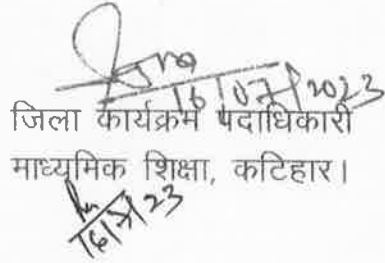 16/07/2023
जिला कार्यक्रम पदाधिकारी
माध्यमिक शिक्षा, कटिहार।